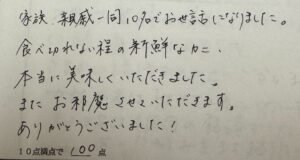 家族、親戚一同10名でお世話になりました。
食べ切れない程の新鮮なカニ、
本当に美味しくいただきました。
またお邪魔させていただきます。
ありがとうございました!
10点満点で 100 点